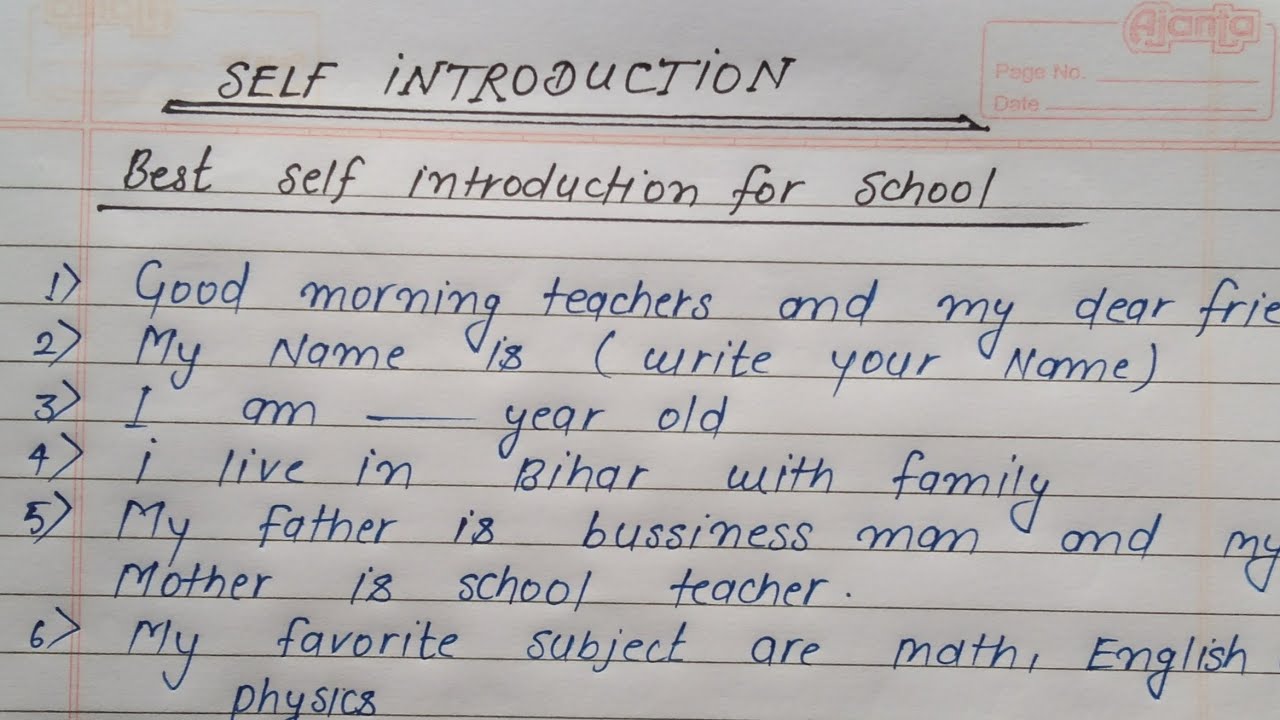 Ajanta
Page No.
Date
SELF INTRODUCTION
Best self introduction for school
1) Good morning teachers and my dear frie
2) My Name is (write your Name)
3) I am —— year old
4) i live in Bihar with family
5) My father is bussiness man and my
Mother is school teacher.
6) My favorite subject are math, English
physics